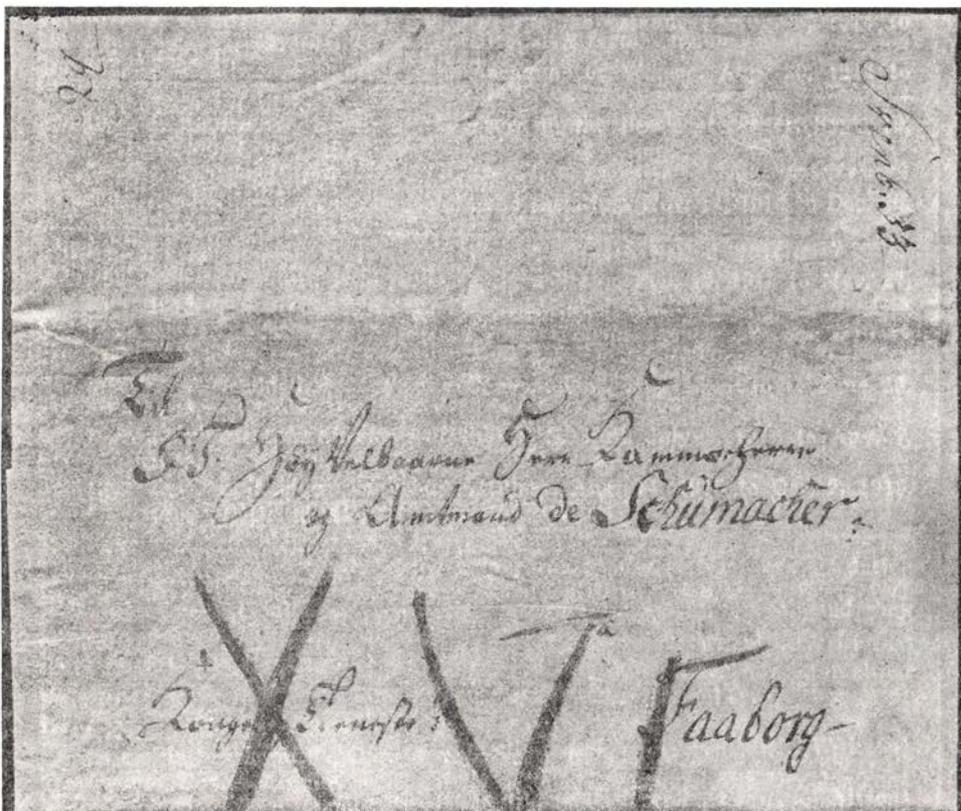 24
Svenb: 33
Til
S: T: HøyVelbaarne Herr Kammerherre
og Amtmand de Schumacher
a
Konge Tieneste:
Faaborg
XVI